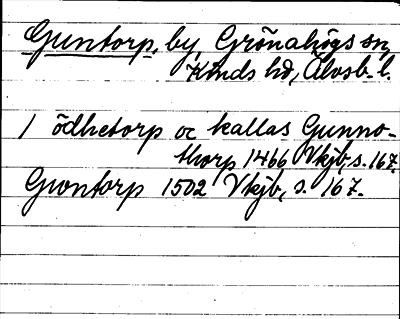 Guntorp, by, Grönahögs sn,
Kinds hd, Älvsb. l.
1 ödhetorp oc kallas Gunno-
thorp 1466 Vkjb, s. 167.
Gwntorp 1502 Vkjb, s. 167.